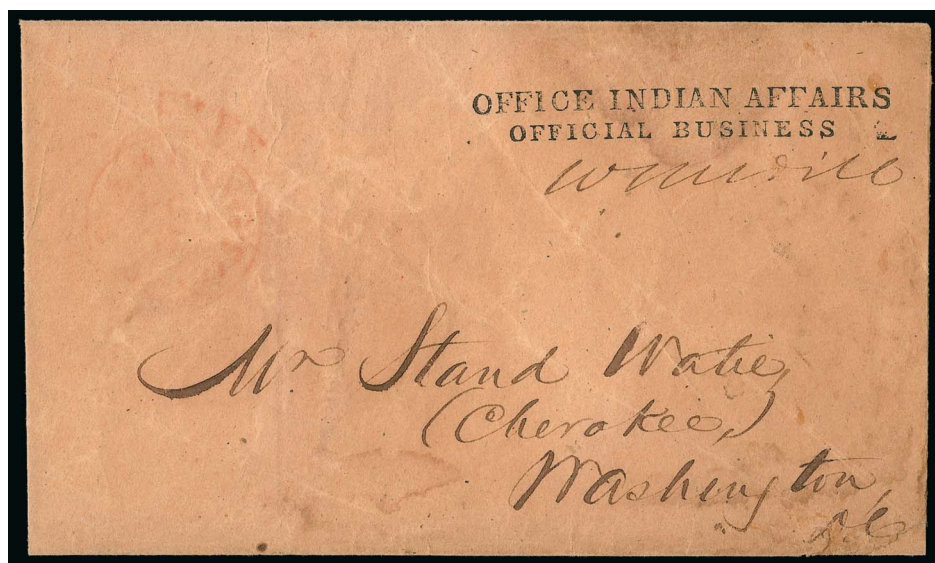 OFFICE INDIAN AFFAIRS
OFFICIAL BUSINESS
W Medill
Mr Stand Watie,
(Cherokee,)
Washington,
D C